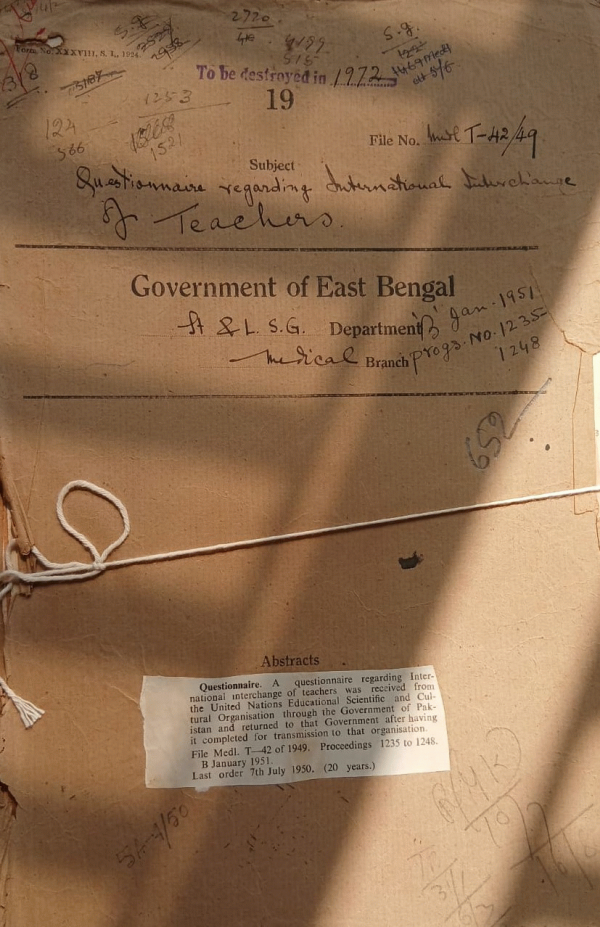 2720.
Form No. XXXVIII, S. L., 1924.
318
To be destroyed in 1972
19
1253
124
366
1521
File No. Medl T-42/49
Subject
Questionnaire regarding International Interchange
Of Teachers.
Government of East Bengal
H & L. S. G. Department
Medical Branch
'B' Jan. 1951
Progs. No. 1235-
1248
652
Abstracts
Questionnaire. A questionnaire regarding Inter-
national interchange of teachers was received from
the United Nations Educational Scientific and Cul-
tural Organisation through the Government of Pak-
istan and returned to that Government after having
it completed for transmission to that organisation.
File Medl. T—42 of 1949. Proceedings 1235 to 1248.
B January 1951.
Last order 7th July 1950. (20 years.)